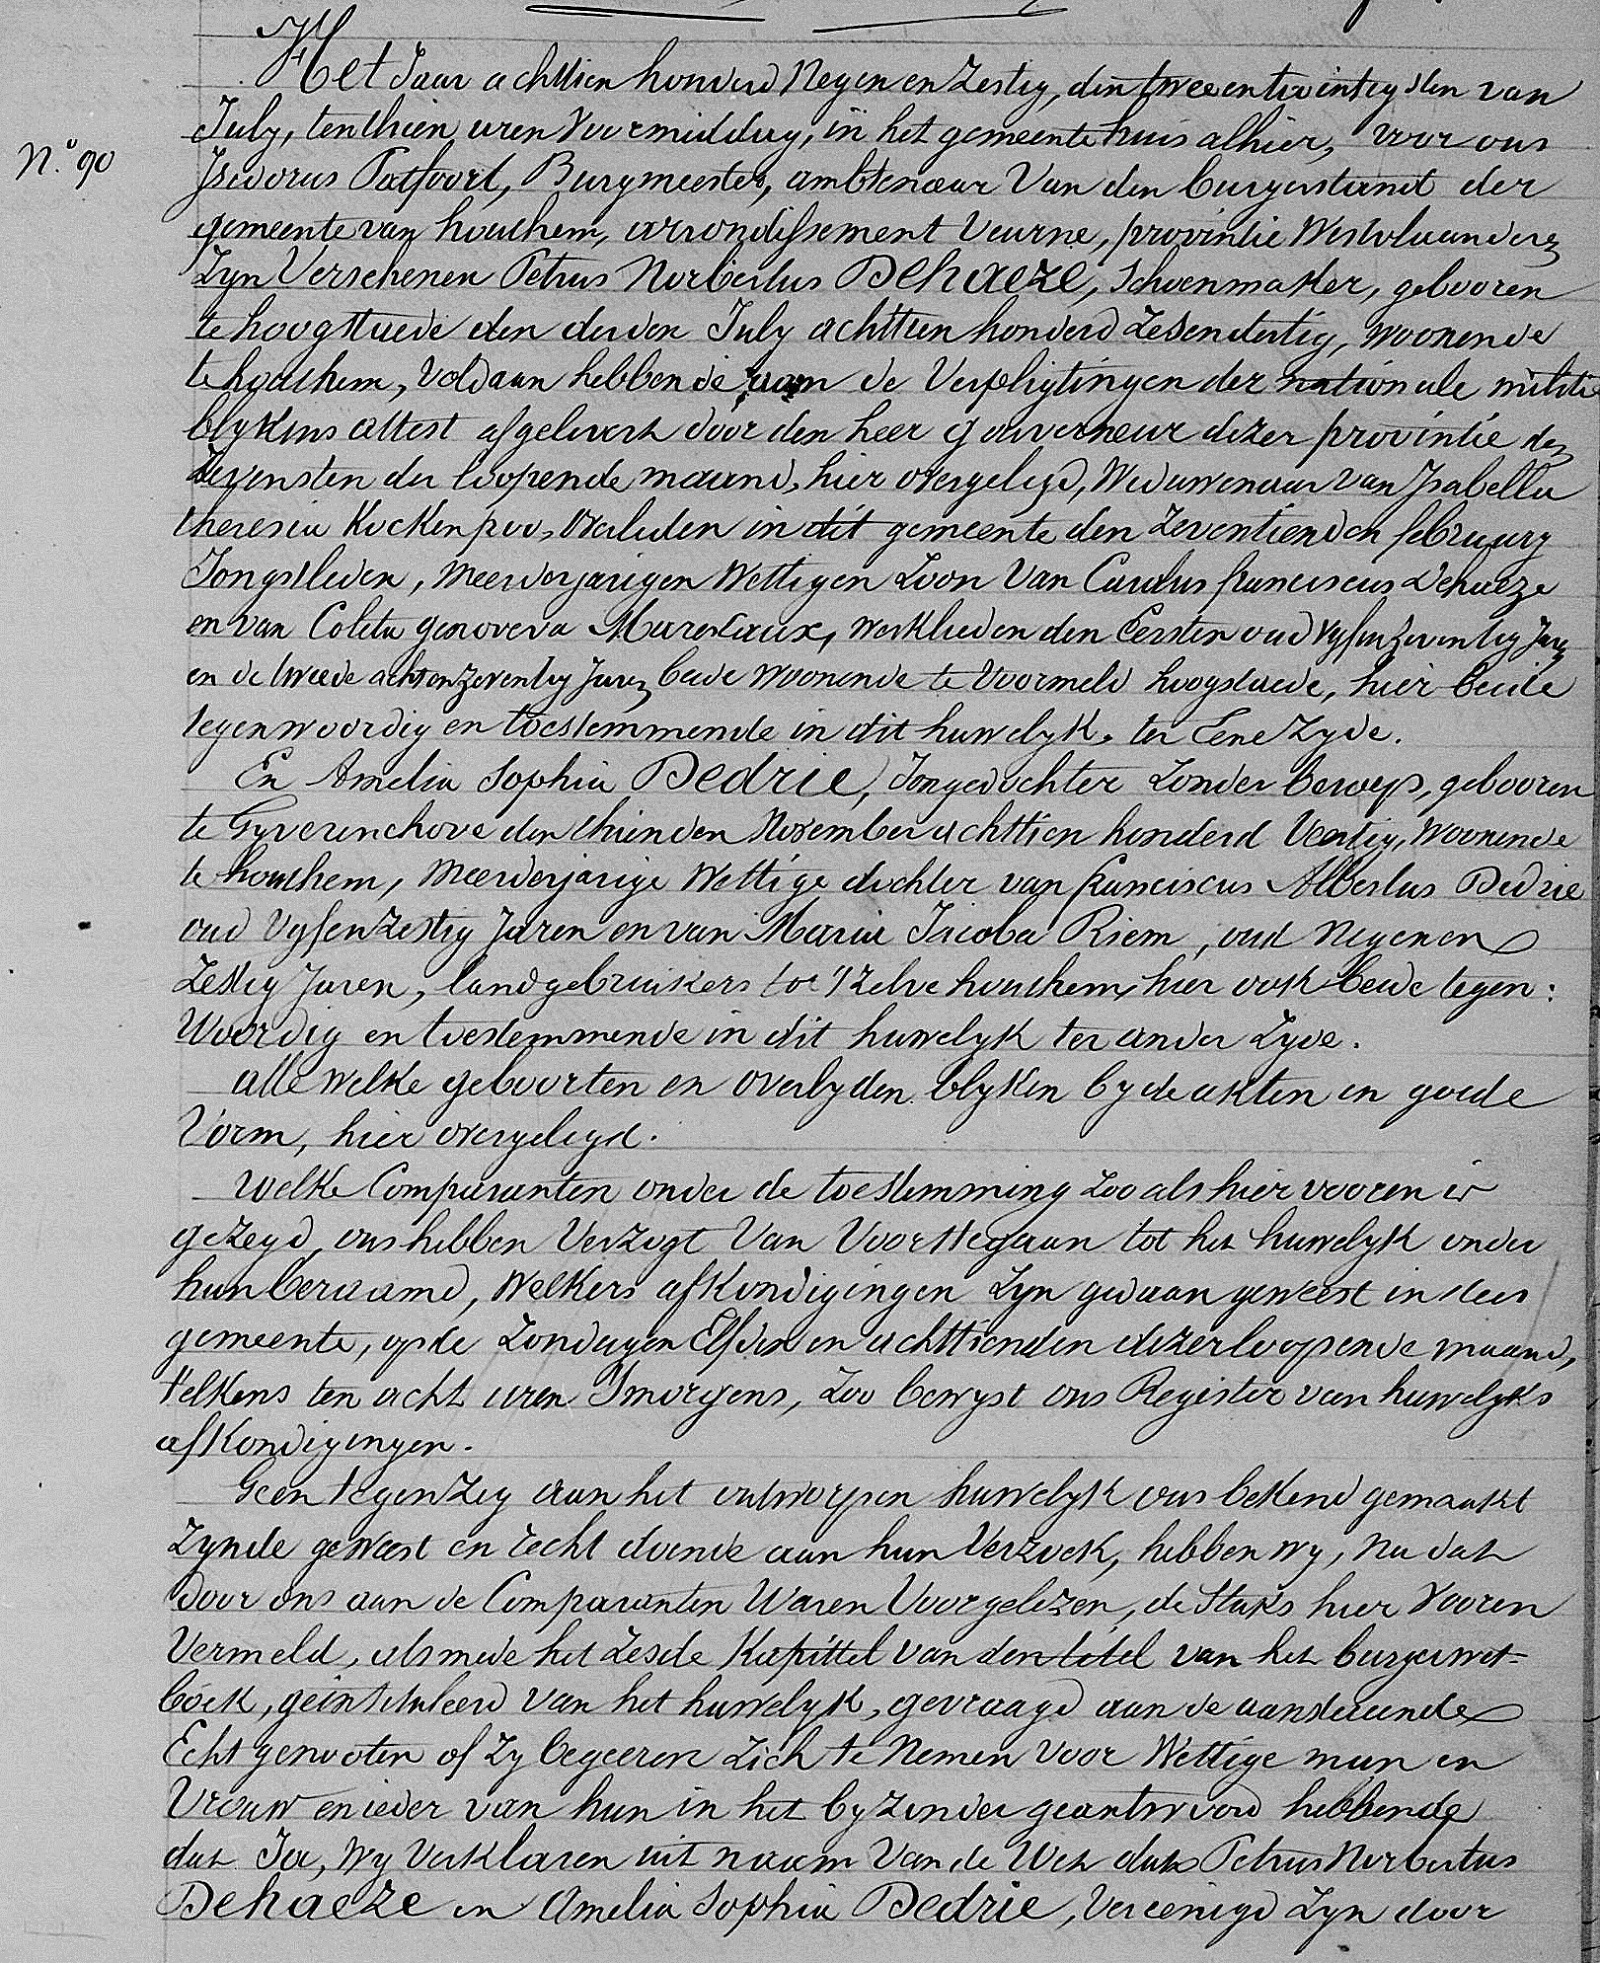 Het Jaar achttien honderd Negen en Zestig, den twee en twintigsten van
July, ten thien uren voormiddag, in het gemeente huis alhier, voor ons
N.º 90
Isidorus Patfoort, Burgmeester, ambtenaar Van den burgerstand der
gemeente van houthem, arrondissement Veurne, provintie Westvlaanderen
Zyn Verschenen Petrus Norbertus Dehaeze, Schoenmaker, gebooren
te hoogstaede den derden July achttien honderd Zesendertig, woonende
te houthem, Voldaan hebbende aan de Verpligtingen der nationale militie
blykens attest afgeleverd door den heer gouverneur dezer provintie den
Zevensten der loopende maand, hier overgelegd, Weduwenaar van Isabella
theresia Kockenpoo, Overleden in dit gemeente den Zeventienden february
Jongstleden, meerderjarigen Wettigen Zoon Van Carolus franciscus Dehaeze
en van Coleta genoveva Marecaux, werklieden den Eersten oud vyfenzeventig Jaren
en de tweede achtenzeventig Jaren beide woonende te Voormeld hoogstaede, hier beide
tegenwoordig en toestemmende in dit huwelyk, ter Eene Zyde.
En Amelia Sophia Dedrie, Jongedochter Zonder beroep, gebooren
te Gyverinchove den thienden November achttien honderd Veertig, woonende
te houthem, Meerderjarige Wettige dochter van franciscus Albertus Dedrie
oud Vyfenzestig Jaren en van Maria Jacoba Riem, oud Negenen
Zestig Jaren, landgebruikers tot 't Zelve houthem, hier ook beide tegen:
Woordig en toestemmende in dit huwelyk ter ander Zyde.
alle welke geboorten en overlyden blyken by de akten in goede
Vorm, hier overgelegd.
Welke Comparanten onder de toestemming zoo als hier vooren is
gezegd, ons hebben Verzogt Van Voorttegaan tot het huwelyk onder
hun beraamd, Welkers afkondigingen Zyn gedaan geweest in dees
gemeente, op de Zondagen Elfden en achttienden dezer loopende maand,
telkens ten acht uren 'Smorgens, Zoo bewyst ons Register van huwelyks
afkondigingen.
Geen tegenzeg aan het ontworpen huwelyk ons bekend gemaakt
Zynde geweest en recht doende aan hun Verzoek, hebben wy, na dat
door ons aan de Comparanten Waren Voorgelezen, de Stuks hier Vooren
Vermeld, alsmede het Zesde Kapittel van den titel van het burgerwet-
boek, geintituleerd van het huwelyk, gevraagd aan de aanstaende
Echtgenooten of Zy begeeren Zich te Nemen Voor Wettige man en
Vrouw en ieder van hun in het byzonder geantwoord hebbende
dat Ja, Wy Verklaren uit naam Van de Wet dat Petrus Norbertus
Dehaeze en Amelia Sophia Dedrie, Vereenigd Zyn door